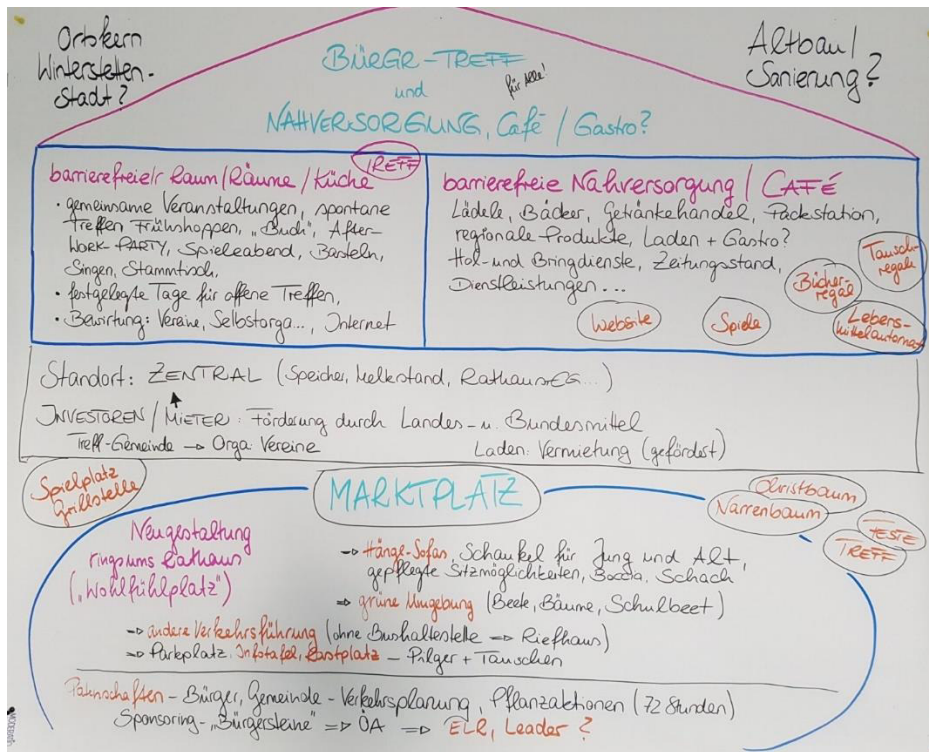 Ortskern
Winterstetten-
Stadt?
Altbau/
Sanierung?
BÜRGR-TREFF
für Alle!
und
NAHVERSORGUNG, Café / Gastro?
barrierefreie/r Raum/Räume/Küche
TREFF
• gemeinsame Veranstaltungen, spontane
Treffen Frühshoppen, „Buch", After-
Work-PARTY, Spieleabend, Basteln,
Singen, Stammtisch,
• festgelegte Tage für offene Treffen,
• Bewirtung: Vereine, Selbstorga..., Internet
barrierefreie Nahversorgung / CAFÉ
Lädele, Bäcker, Getränkehandel, Packstation,
regionale Produkte, Laden + Gastro?
Hol- und Bringdienste, Zeitungsstand,
Dienstleistungen...
Tausch-
regale
Bücher-
regal
Website
Spiele
Lebens-
mittelautomat
Standort: ZENTRAL (Speicher, Melkstand, Rathaus-EG...)
INVESTOREN / MIETER: Förderung durch Landes- u. Bundesmittel
Treff-Gemeinde → Orga: Vereine
Laden: Vermietung (gefördert)
Spielplatz
Grillstelle
MARKTPLATZ
Christbaum
Narrenbaum
FESTE
TREFF
Neugestaltung
ringsums Rathaus
(„Wohlfühlplatz")
→ Hänge-Sofas, Schaukel für Jung und Alt,
gepflegte Sitzmöglichkeiten, Boccia, Schach
⇒ grüne Umgebung (Beete, Bäume, Schulbeet)
→ andere Verkehrsführung (ohne Bushaltestelle ⇒ Riefhaus)
→ Parkplatz, Infotafel, Rastplatz – Pilger + Tauschen
Patenschaften – Bürger, Gemeinde – Verkehrsplanung, Pflanzaktionen (72 Stunden)
Sponsoring – „Bürgersteine" ⇒ ÖA ⇒ ELR, Leader?